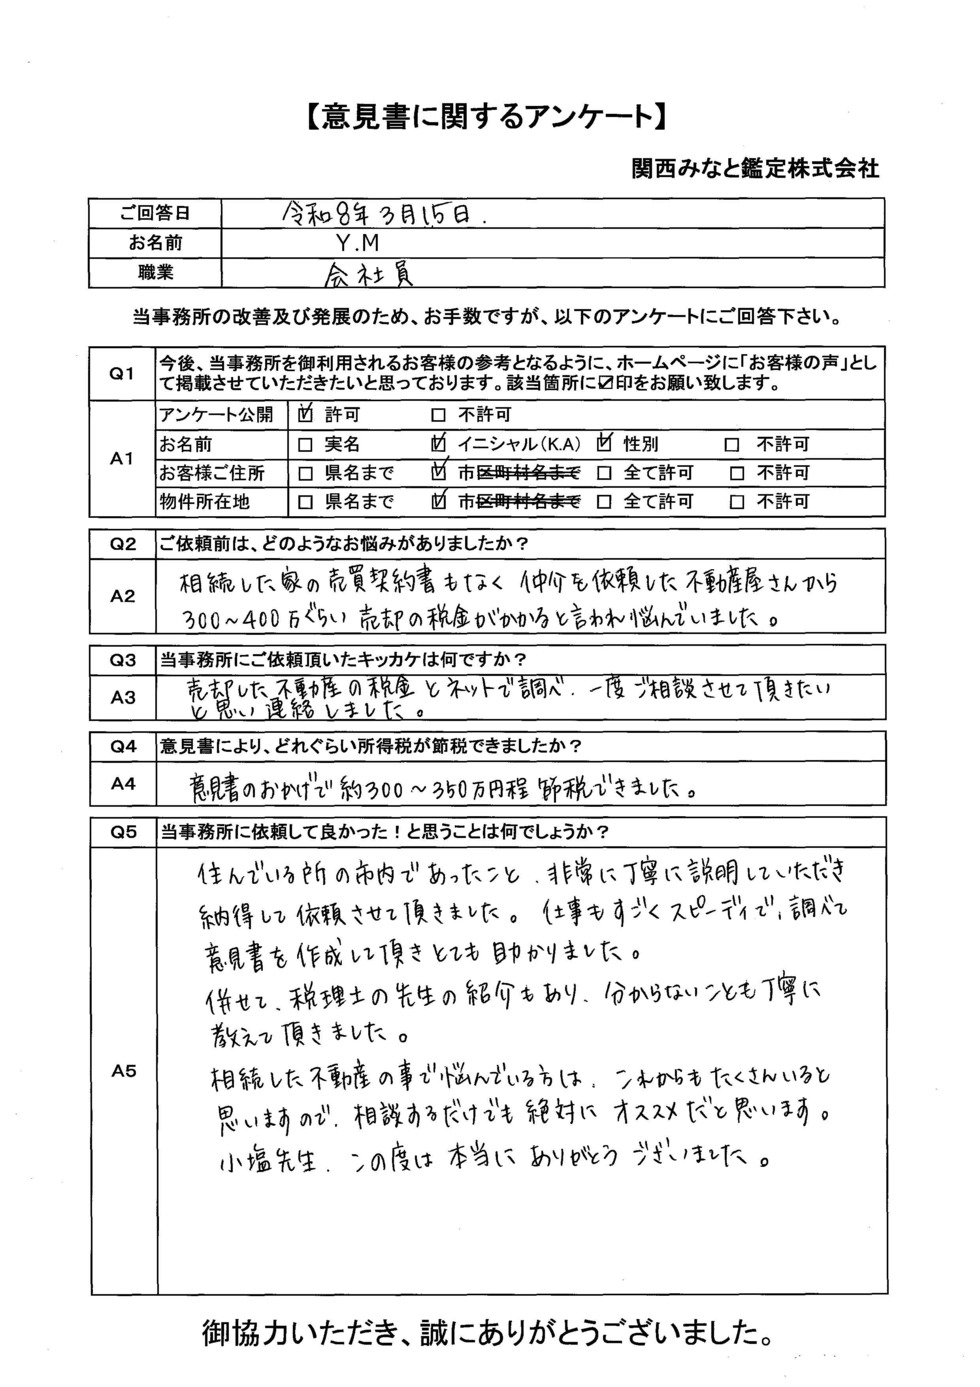 【意見書に関するアンケート】
関西みなと鑑定株式会社
ご回答日 令和8年3月15日.
お名前 Y.M
職業 会社員
当事務所の改善及び発展のため、お手数ですが、以下のアンケートにご回答下さい。
Q1 今後、当事務所を御利用されるお客様の参考となるように、ホームページに「お客様の声」とし
て掲載させていただきたいと思っております。該当箇所に☑印をお願い致します。
A1
アンケート公開 ☑ 許可 □ 不許可
お名前 □ 実名 ☑ イニシャル(K.A) ☑ 性別 □ 不許可
お客様ご住所 □ 県名まで ☑ 市区町村名まで □ 全て許可 □ 不許可
物件所在地 □ 県名まで ☑ 市区町村名まで □ 全て許可 □ 不許可
Q2 ご依頼前は、どのようなお悩みがありましたか？
A2 相続した家の売買契約書もなく 仲介を依頼した不動産屋さんから
300～400万ぐらい 売却の税金がかかると言われ悩んでいました。
Q3 当事務所にご依頼頂いたキッカケは何ですか？
A3 売却した不動産の税金とネットで調べ、一度ご相談させて頂きたい
と思い連絡しました。
Q4 意見書により、どれぐらい所得税が節税できましたか？
A4 意見書のおかげで約300～350万円程節税できました。
Q5 当事務所に依頼して良かった！と思うことは何でしょうか？
A5
住んでいる所の市内であったこと、非常に丁寧に説明していただき
納得して依頼させて頂きました。仕事もすごくスピーディで、調べて
意見書を作成して頂きとても助かりました。
併せて、税理士の先生の紹介もあり、分からないことも丁寧に
教えて頂きました。
相続した不動産の事で悩んでいる方は、これからもたくさんいると
思いますので、相談するだけでも絶対にオススメだと思います。
小塩先生、この度は本当にありがとうございました。
御協力いただき、誠にありがとうございました。